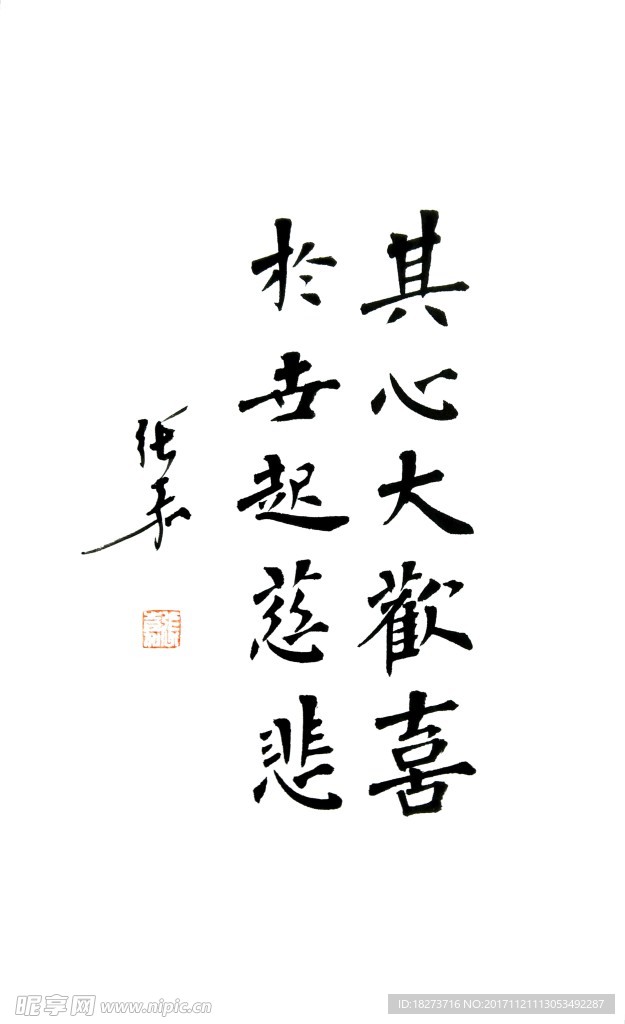 其心大歡喜
於世起慈悲
張嘉
張嘉
昵享网 www.nipic.cn
ID:18273716 NO:20171121113053492287